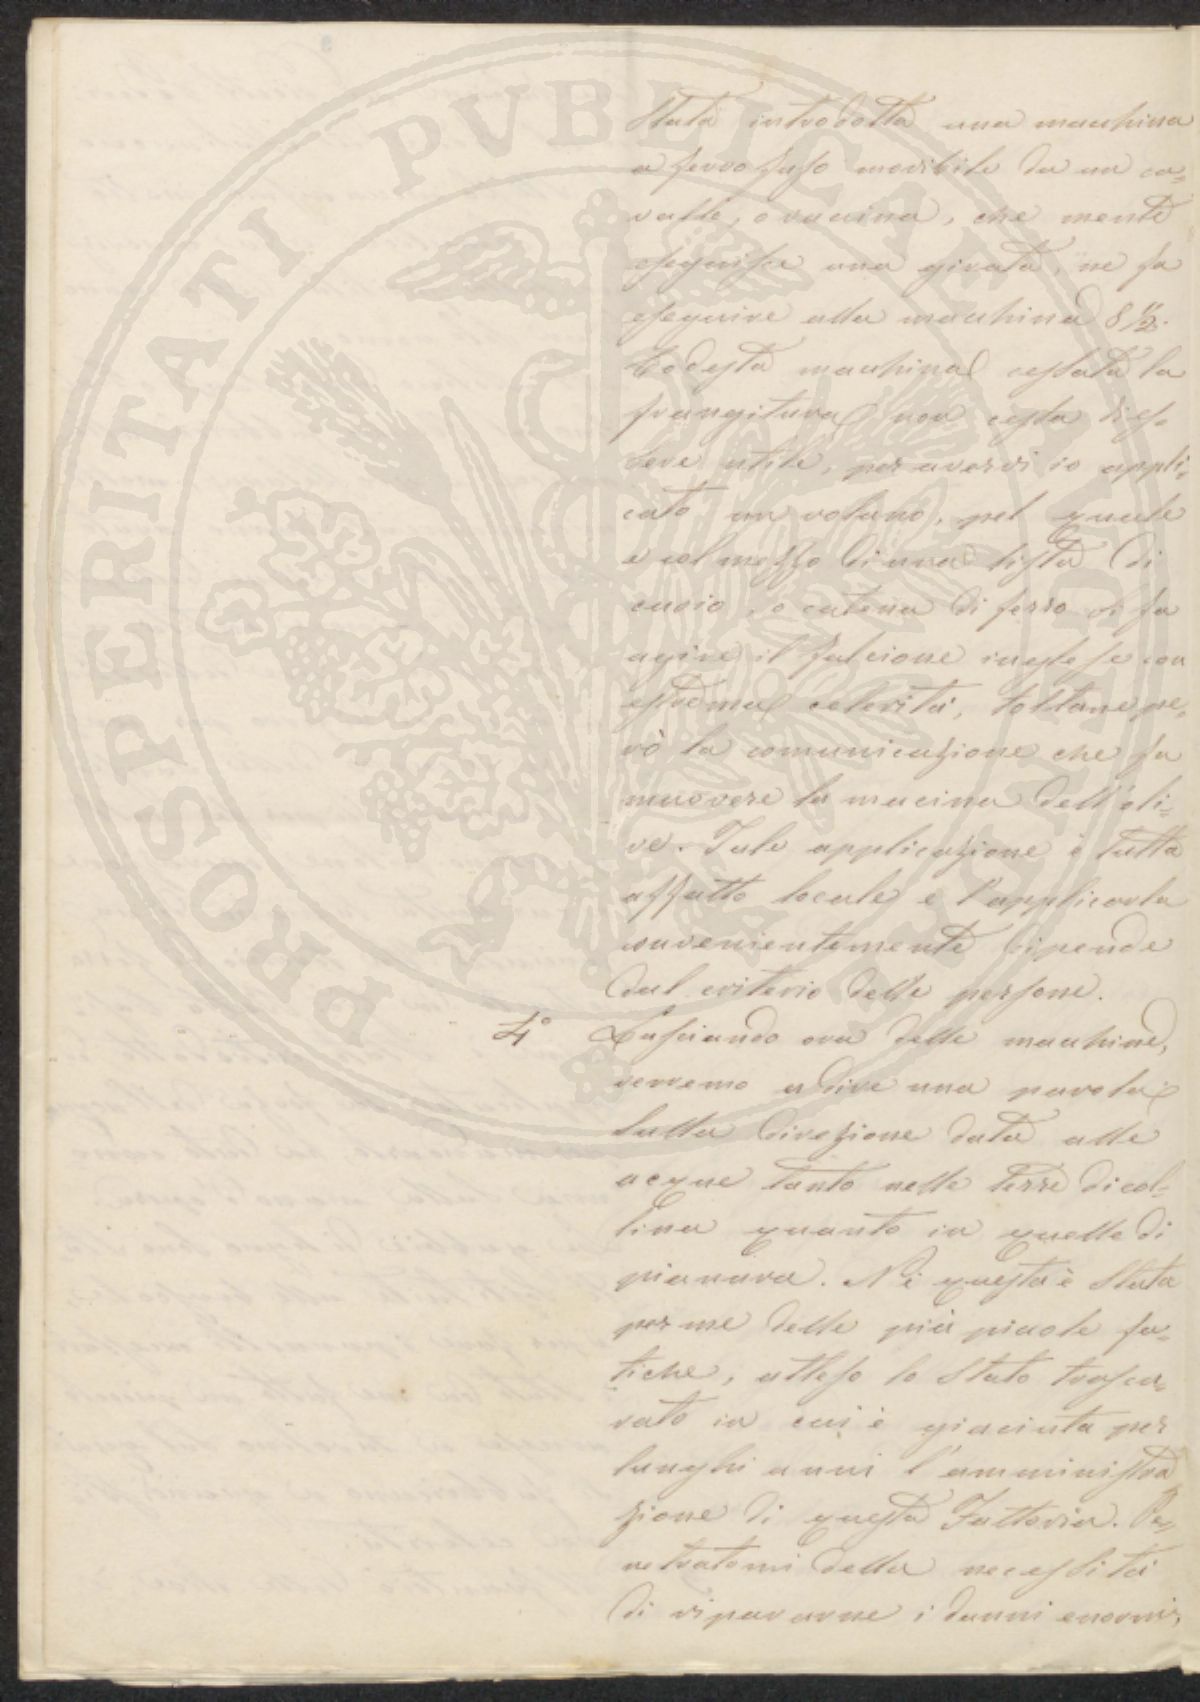 PROSPERITATI PVBLICAE AVGENDAE
stata introdotta una macchina
a ferro fuso movibile da un ca=
vallo, o vaccina, che mentre
eseguisce una girata, ne fa
eseguire alla macchina 8 1/2.
Codesta macchina cessata la
frangitura non cessa di es=
sere utile, per avervi io appli=
cato un volano, pel quale
e col mezzo di una lista di
cuoio, o catena di ferro si fa
agire il falcione inglese con
estrema celerità, toltane pe=
rò la comunicazione che fa
muovere la macina dell'oli=
ve. Tale applicazione è tutta
affatto locale e l'applicarla
convenientemente dipende
dal criterio delle persone.
4° Lasciando ora delle macchine,
verremo a dire una parola
sulla direzione data alle
acque tanto nelle terre di col=
lina quanto in quelle di
pianura. Nè questa è stata
per me delle più piccole fa=
tiche, atteso lo stato trascu=
rato in cui è giaciuta per
lunghi anni l'amministra
zione di questa Fattoria. Pe=
netratomi della necessità
di ripararne i danni enormi,